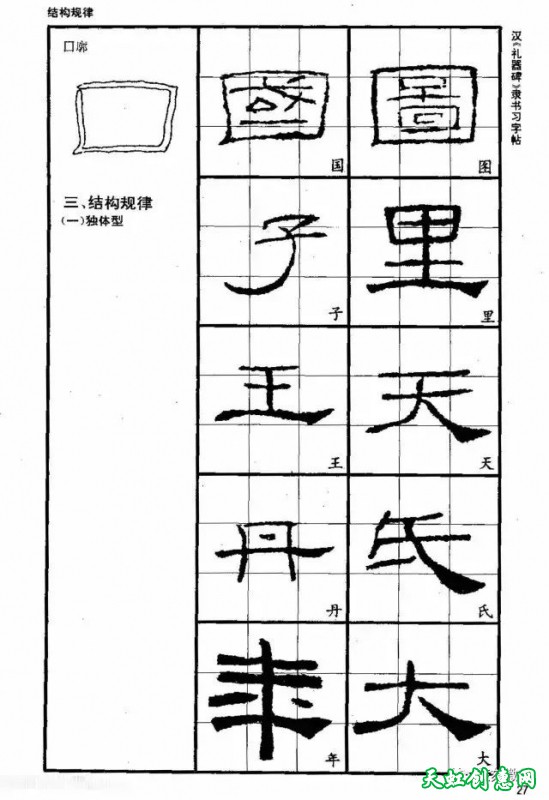 结构规律
囗廓
三、结构规律
(一)独体型
汉《礼器碑》隶书习字帖
國 圖
国 图
子 里
子 里
王 天
王 天
丹 氏
丹 氏
年 大
年 大
天虹创意网
27